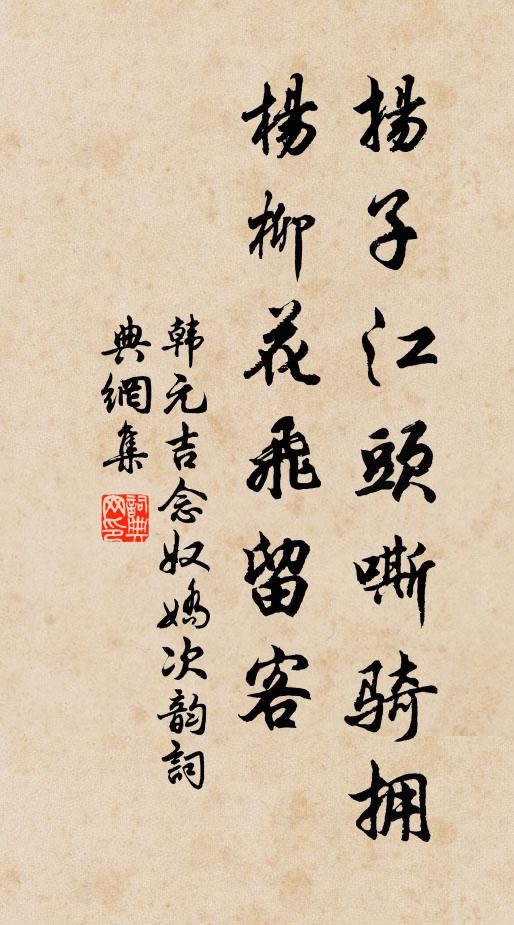 揚子江頭嘶骑拥
楊柳花飛留客
韩元吉念奴嬌次韵詞
典網集
詞典網印